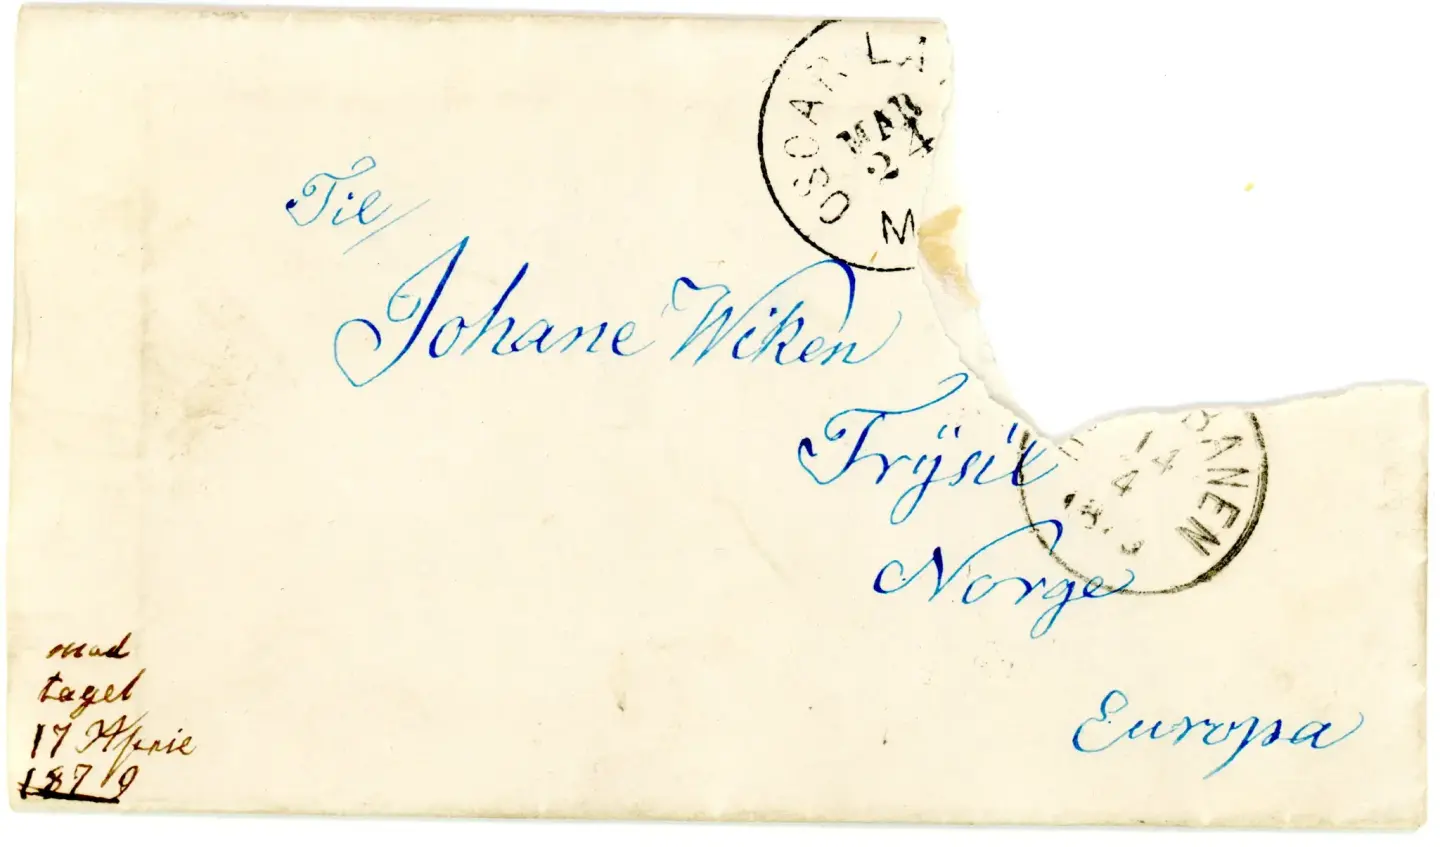 OSCAR LA
MAR
24
M
Til
Johane Wiken
Trysil
Norge
Europa
BANEN
14
4
mod
taget
17 April
1879